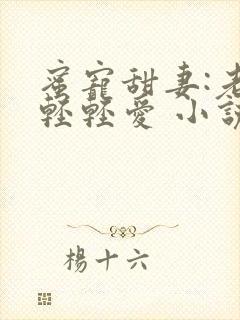 蜜寵甜妻:老
輕輕愛 小說
楊十六